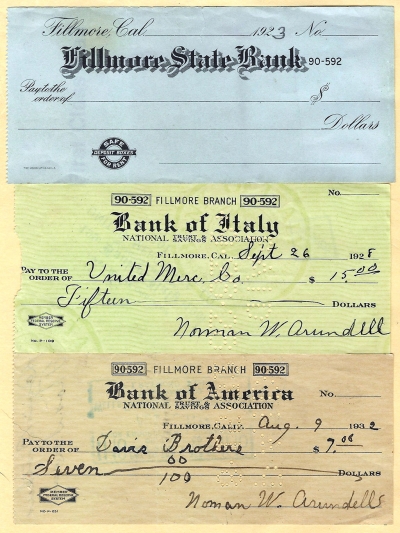 Fillmore, Cal. 1923 No.
Fillmore State Bank 90-592
Pay to the
order of $
Dollars
SAFE
DEPOSIT BOXES
FOR RENT
No.
90-592 FILLMORE BRANCH 90-592
Bank of Italy
NATIONAL TRUST & SAVINGS ASSOCIATION
FILLMORE, CAL. Sept 26 1928
PAY TO THE
ORDER OF United Merc. Co. $ 15.00
Fifteen DOLLARS
MEMBER
FEDERAL RESERVE
SYSTEM
Norman W. Arundell
90-592 FILLMORE BRANCH 90-592
Bank of America No.
NATIONAL TRUST & SAVINGS ASSOCIATION
FILLMORE, CALIF. Aug. 9 1932
PAY TO THE
ORDER OF Davis Brothers $ 7.00
Seven 00/100 DOLLARS
MEMBER
FEDERAL RESERVE
SYSTEM
Norman W. Arundell